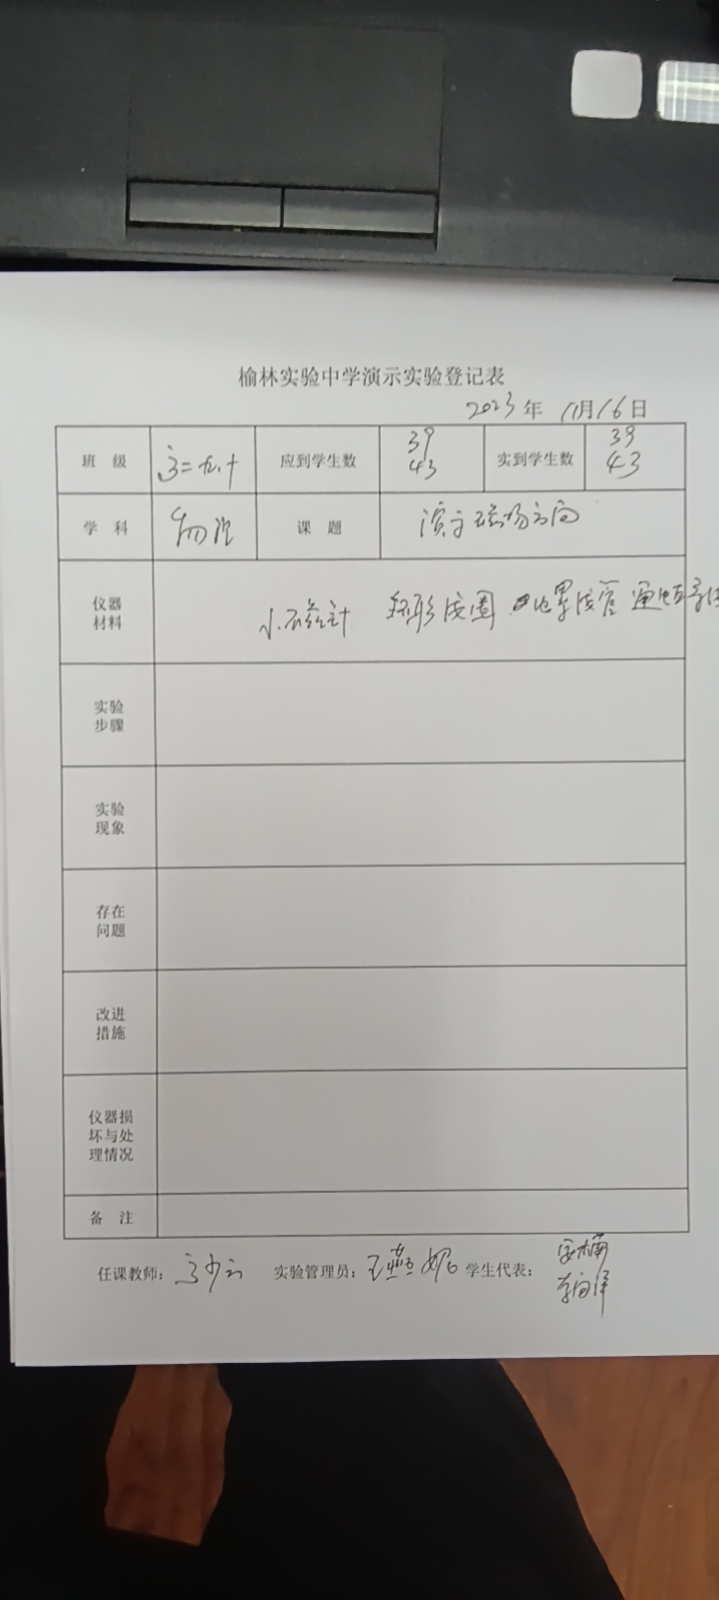 榆林实验中学演示实验登记表
2023年 11月16日
班 级 高二九.十 应到学生数 39 43 实到学生数 39 43
学 科 物理 课 题 演示磁场方向
仪器材料 小磁针 环形线圈 螺线管 通电导
实验步骤
实验现象
存在问题
改进措施
仪器损坏与处理情况
备 注
任课教师： 实验管理员： 学生代表：